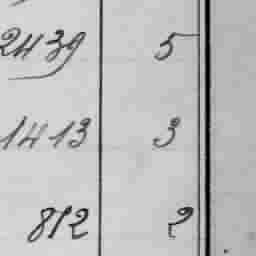 2439 5
1413 3
812 ?